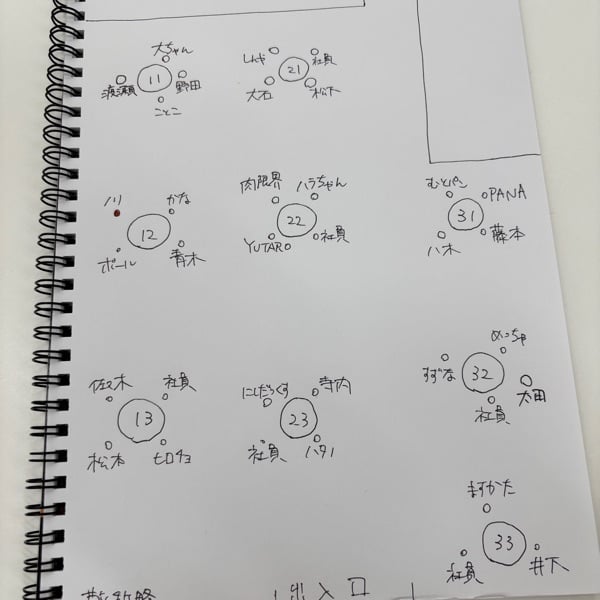 大ちゃん
渡瀬
11
野田
ことこ
しんや
社員
21
大石
松下
川
かな
12
ポール
青木
肉限界
ハラちゃん
22
YUTARO
社員
むとパン
PANA
31
八木
藤本
佐々木
社員
13
松本
ヒロチョ
にしだっくす
寺内
23
社員
ハタノ
めっちゃ
すずな
32
太田
社員
ますかた
33
社員
井下
出入口